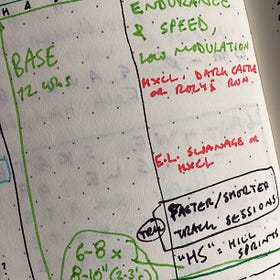 BASE
12 WKS
ENDURANCE
& SPEED,
LOW MODULATION
HXCL, DARK CASTLE
OR ROLYS RUN.
E.L. SWANAGE OR
HXCL
TRX
FASTER/SHORTER
TRACK SESSIONS
"HS" = HILL
SPRINTS
6-8 x
8-10"